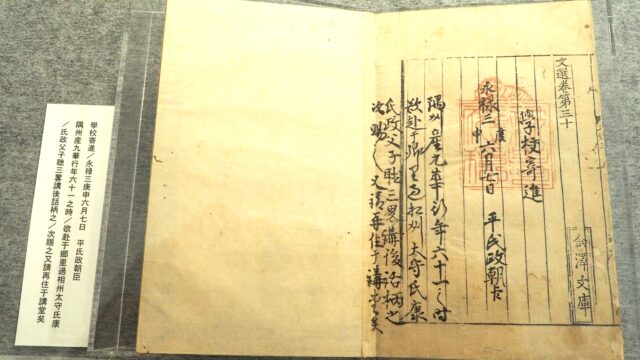 文選卷第三十
金澤文庫
學校寄進
永禄三庚申六月七日 平氏政朝臣
隅州産九華行年六十一之時
欲赴于郷里過相州太守氏康
氏政父子聴三畧講後話柄之
次賜之又請再住于講堂矣
學校寄進/永禄三庚申六月七日 平氏政朝臣
隅州産九華行年六十一之時/欲赴于郷里過相州太守氏康
/氏政父子聴三畧講後話柄之/次賜之又請再住于講堂矣